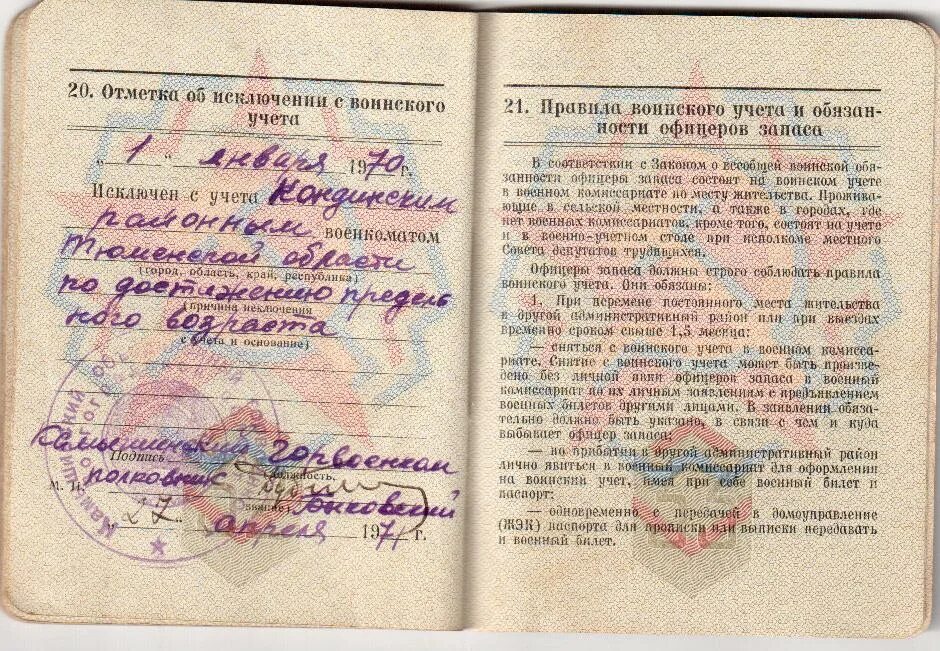 20. Отметка об исключении с воинского
учета
„ 1 “ января 1970 г.
Исключен с учета Кондинским
районным военкоматом
Тюменской области
(город, область, край, республика)
по достижению предель
(причина исключения
ного возраста
с учета и основание)
Камышинский Горвоенком
Подпись должность,
полковник
М. П. звание) Быковский
„ 27 “ апреля 1971 г.
21. Правила воинского учета и обязан-
ности офицеров запаса
В соответствии с Законом о всеобщей воинской обя-
занности офицеры запаса состоят на воинском учете
в военном комиссариате по месту жительства. Прожива-
ющие в сельской местности, а также в городах, где
нет военных комиссариатов, кроме того, состоят на учете
и в военно-учетном столе при исполкоме местного
Совета депутатов трудящихся.
Офицеры запаса должны строго соблюдать правила
воинского учета. Они обязаны:
1. При перемене постоянного места жительства
в другой административный район или при выездах
временно сроком свыше 1,5 месяца:
— сняться с воинского учета в военном комисса-
риате. Снятие с воинского учета может быть произве-
дено без личной явки офицеров запаса в военный
комиссариат по их личным заявлениям с предъявлением
военных билетов другими лицами. В заявлении обяза-
тельно должно быть указано, в связи с чем и куда
выбывает офицер запаса;
— по прибытии в другой административный район
лично явиться в военный комиссариат для оформления
на воинский учет, имея при себе военный билет и
паспорт;
— одновременно с передачей в домоуправление
(ЖЭК) паспорта для прописки или выписки передавать
и военный билет.